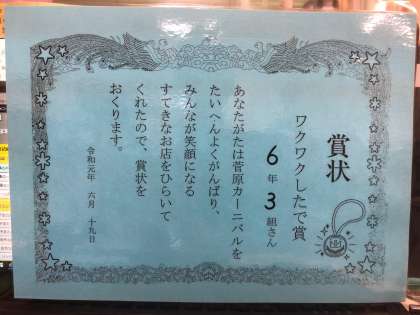 賞状
ワクワクしたで賞
6年3組さん
あなたがたは菅原カーニバルを
たいへんよくがんばり、
みんなが笑顔になる
すてきなお店をひらいて
くれたので、賞状を
おくります。
令和元年 六月 十九日